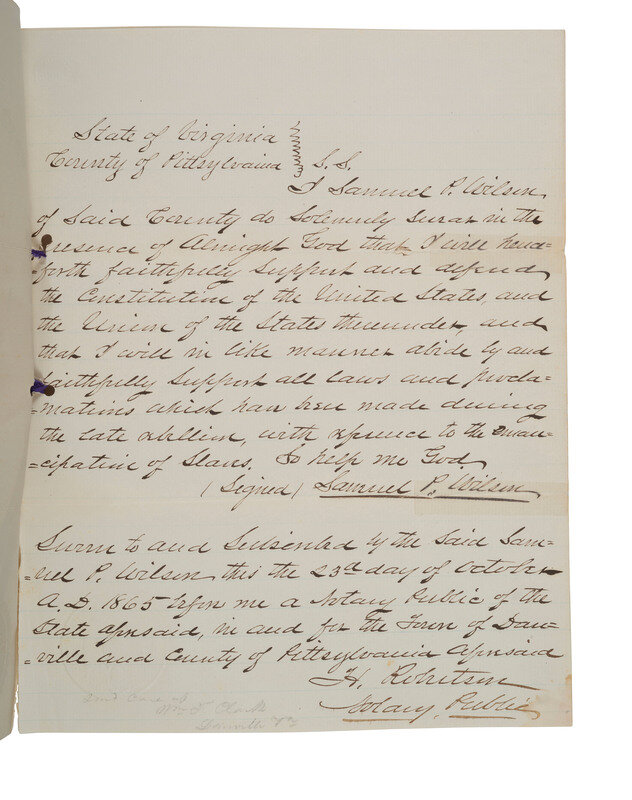 State of Virginia
County of Pittsylvania S.S.
I Samuel P. Wilson
of Said County do Solemnly Swear in the
presence of Almight God that I will hence=
=forth faithfully Support and defend
the Constitution of the United States, and
the Union of the States thereunder, and
that I will in like manner abide by and
faithfully Support all laws and procla=
=mations which have been made during
the late rebellion, with reference to the eman=
=cipation of Slaves. So help me God,
(Signed) Samuel P. Wilson
Sworn to and Subscribed by the Said Sam=
=uel P. Wilson, this the 23d day of October
A.D. 1865 before me a Notary Public of the
State aforesaid, in and for the Town of Dan=
=ville and County of Pittsylvania aforesaid
H. Robertson
Notary Public
Wm T. Clark
Danville Va